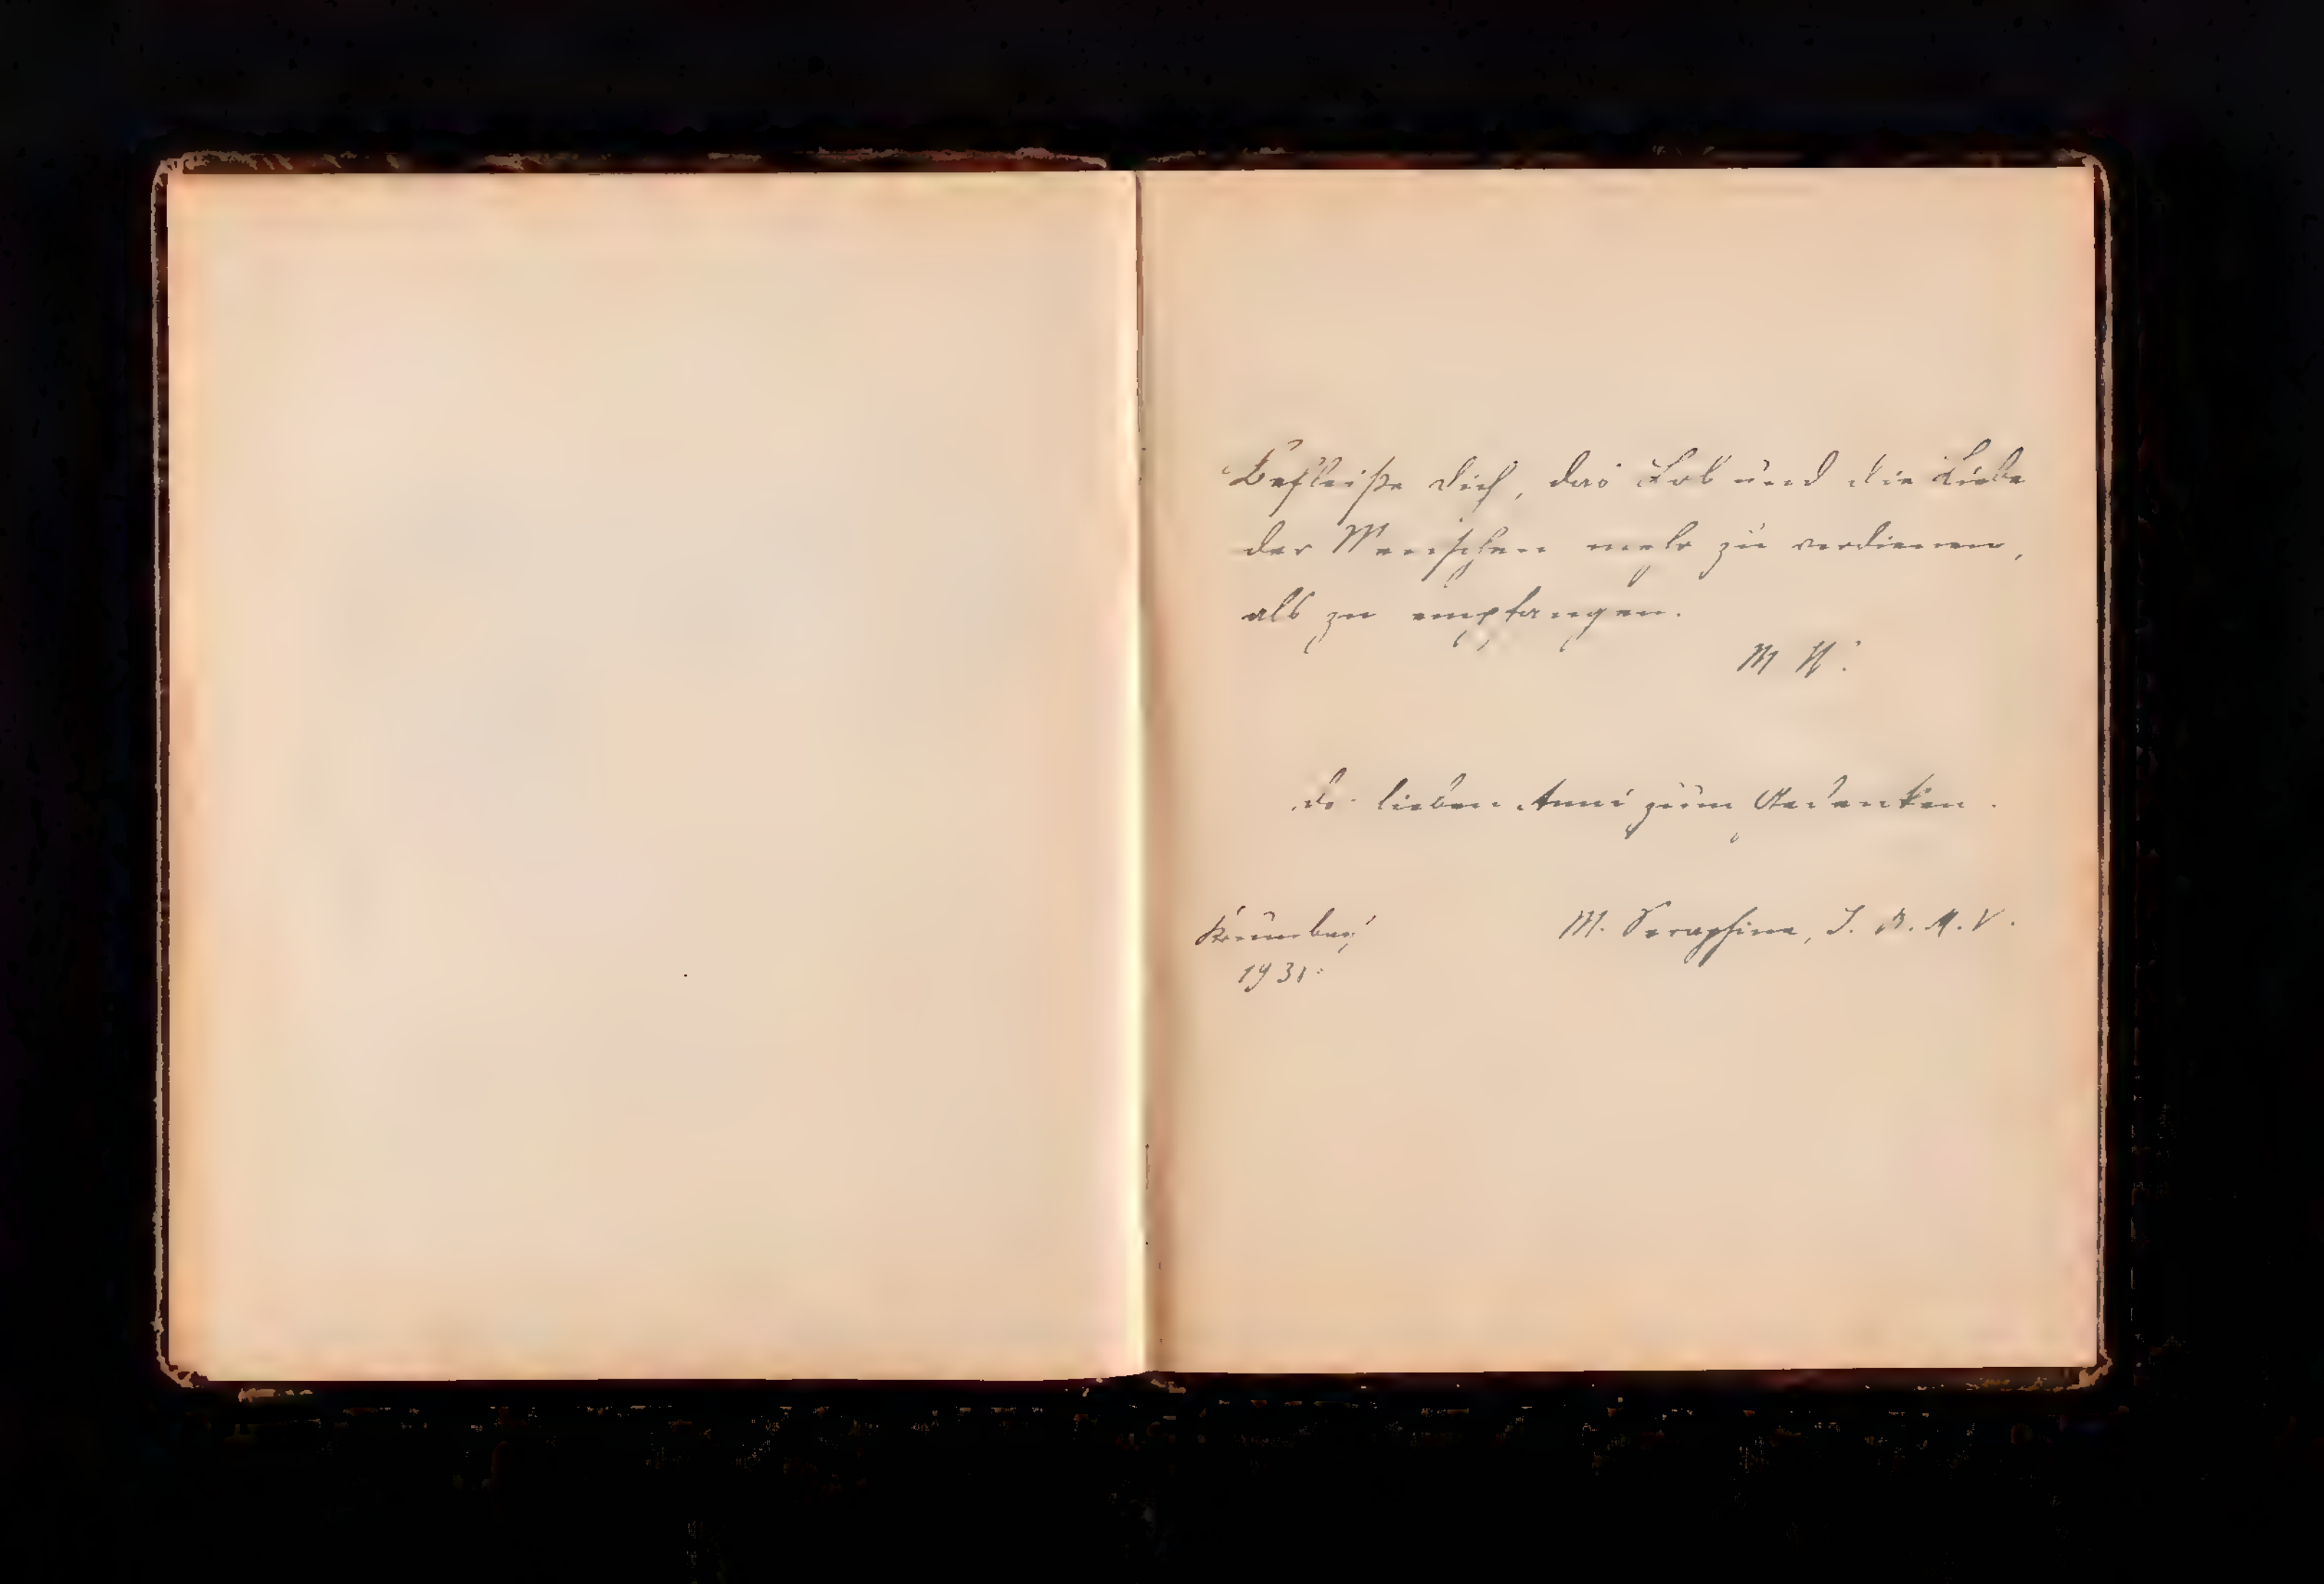 Befleiße dich, das Lob und die Liebe
der Menschen mehr zu verdienen,
als zu empfangen.
M
lieben Anni zum Andenken.
1931.
M. Seraphine, I. B. M. V.